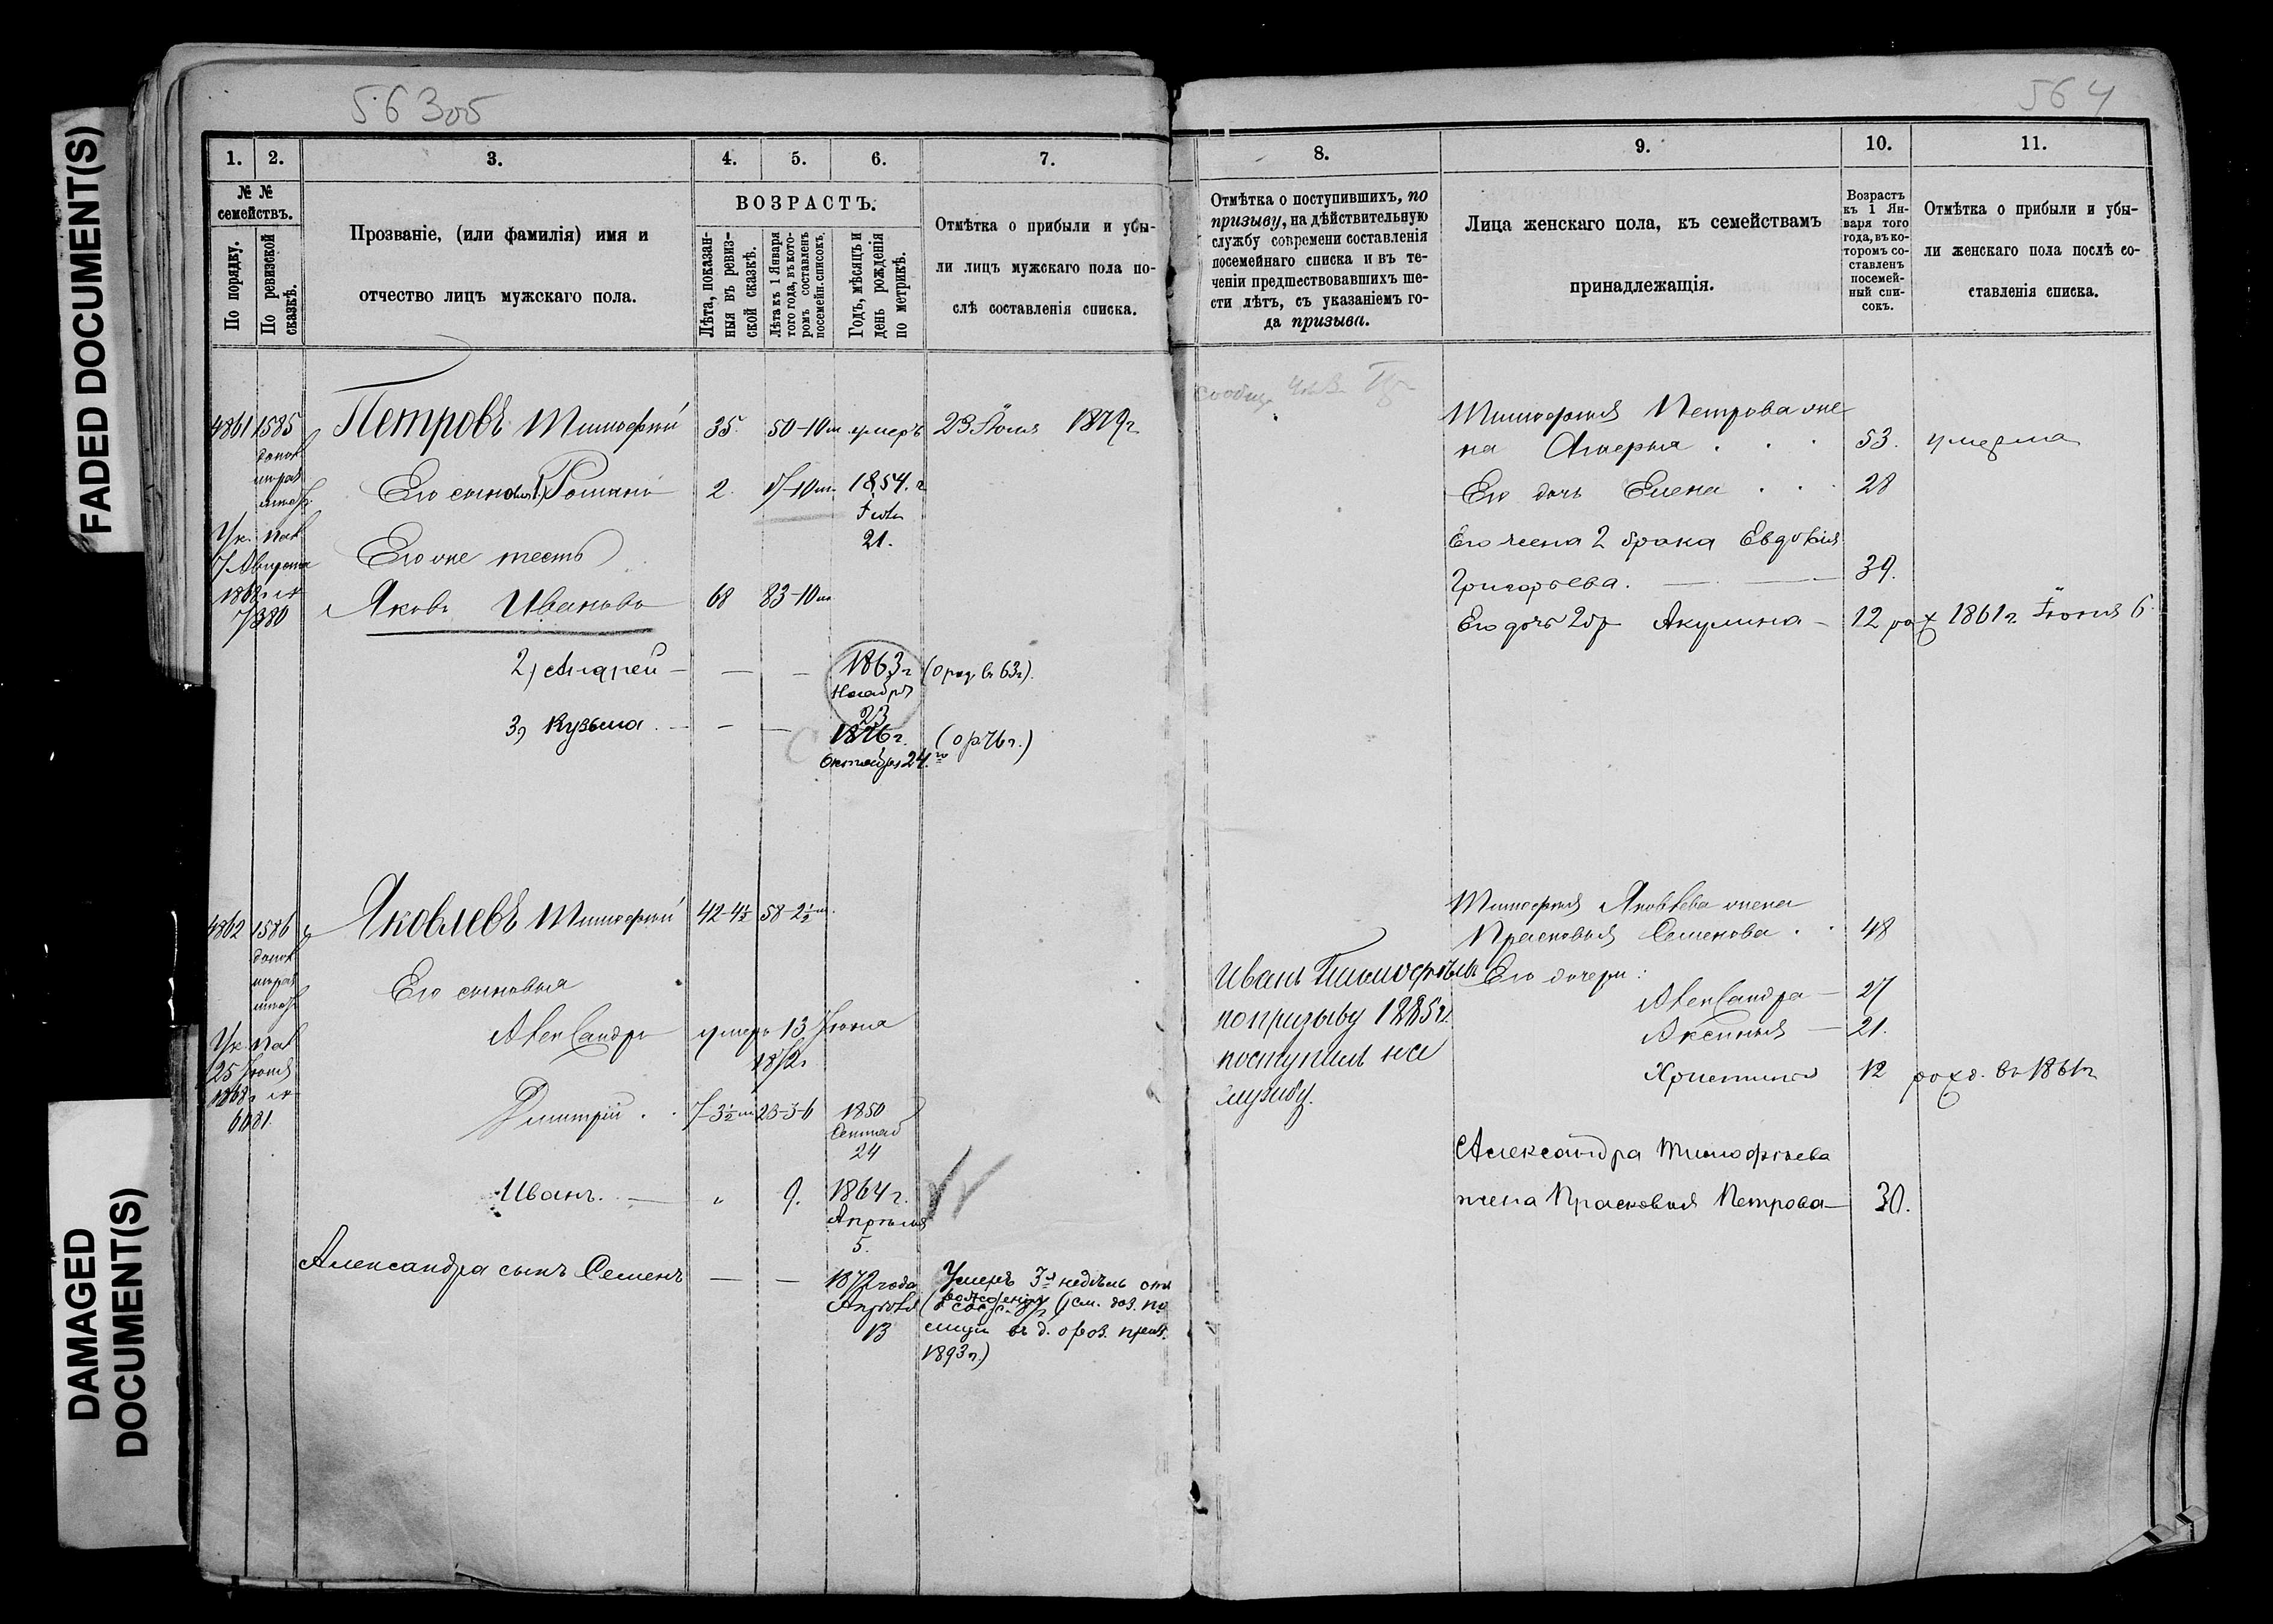 FADED DOCUMENT(S)
DAMAGED
DOCUMENT(S)
563об
1. 2. 3. 4. 5. 6. 7.
№ №
семействъ.
По порядку.
По ревизской
сказкѣ.
Прозваніе, (или фамилія) имя и
отчество лицъ мужскаго пола.
ВОЗРАСТЪ.
Лѣта, показан-
ныя въ ревиз-
ской сказкѣ.
Лѣта къ 1 Января
того года, въ кото-
ромъ составленъ
посемейн. списокъ.
Годъ, мѣсяцъ и
день рожденія
по метрикѣ.
Отмѣтка о прибыли и убы-
ли лицъ мужскаго пола по-
слѣ составленія списка.
4861 1585 Петровъ Тимофей 35. 50-10м умеръ 23 Іюля 1879г
Его сыновья 1) Романъ 2. 17-10м. 1854. г
21.
Ук. Пал
7 Августа
1868г №
7380
Его же тесть
Яковъ Ивановъ 68 83-10м
2) Андрей — — — 1863г (о род. въ 63г).
Ноября
23
3) Кузьма. — — — 1876г. (о р 76г.)
Октября 24.го
4862 1586 Яковлевъ Тимофей 42-4½ 58-2½м.
Ук. Пал
25 Іюня
1868г №
6681.
Его сыновья
Александръ умеръ 13 Іюня
1872г
Дмитрій . . 7-3½м 23-3-6 1850
Сентяб
24
Иванъ. — „ 9. 1864г.
Апрѣля
5.
Александра сынъ Семенъ — — 1872 года Умеръ 3х недѣль отъ
Апрѣля рожденія (см. доз. по
13 лиціи въ д. о роз. приз.
1893г.)
564
8. 9. 10. 11.
Отмѣтка о поступившихъ, по
призыву, на дѣйствительную
службу современи составленія
посемейнаго списка и въ те-
ченіи предшествовавшихъ ше-
сти лѣтъ, съ указаніемъ го-
да призыва.
Лица женскаго пола, къ семействамъ
принадлежащія.
Возрастъ
къ 1 Ян-
варя того
года, въ ко-
торомъ со-
ставленъ
посемей-
ный спи-
сокъ.
Отмѣтка о прибыли и убы-
ли женскаго пола послѣ со-
ставленія списка.
Тимофея Петрова же
на . . . 53. умерла
Его дочь Елена . . . 28
Его жена 2 брака Евдокія
Григорьева. — — 39.
Его дочь 2 бр Акулина — 12 рож 1861г. Іюня 6.
Тимофея Яковлева жена
Прасковья Семенова . . 48
Его дочери:
Александра — 27
Аксинья — 21.
Христинья 12 рожд. въ 1861г
Иванъ Тимофѣевъ
по призыву 1885г.
поступилъ на
службу.
Александра Тимофѣева
жена Прасковья Петрова — 30.